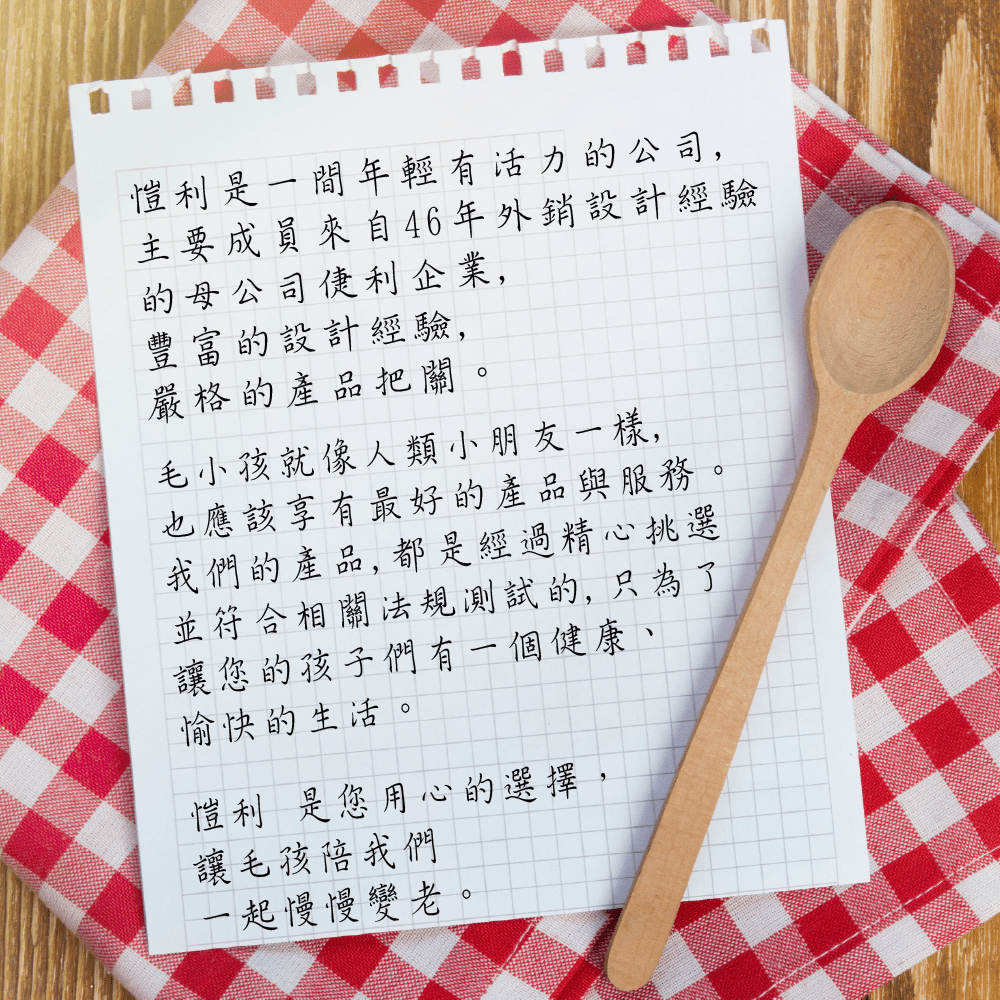 愷利是一間年輕有活力的公司,
主要成員來自46年外銷設計經驗
的母公司倢利企業,
豐富的設計經驗,
嚴格的產品把關。
毛小孩就像人類小朋友一樣,
也應該享有最好的產品與服務。
我們的產品,都是經過精心挑選
並符合相關法規測試的,只為了
讓您的孩子們有一個健康、
愉快的生活。
愷利 是您用心的選擇，
讓毛孩陪我們
一起慢慢變老。